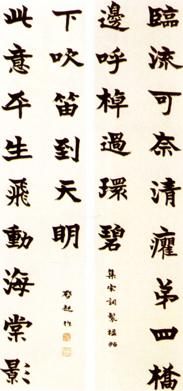 臨流可奈清癯弟四橋
邊呼棹過環碧
集宋詞製楹帖
此意平生飛動海棠影
下吹笛到天明
啟超作